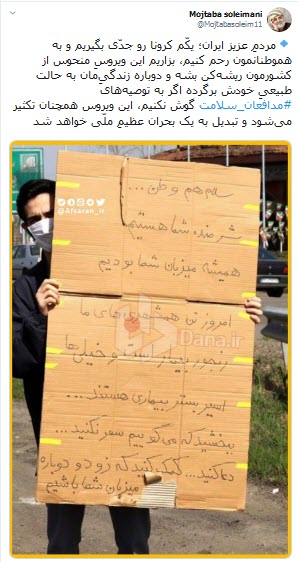 Mojtaba soleimani
@Mojtabasoleim11
مردم عزیز ایران؛ یکّم کرونا رو جدّی بگیریم و به
هموطنانمون رحم کنیم، بزاریم این ویروس منحوس از
کشورمون ریشه‌کن بشه و دوباره زندگی‌مان به حالت
طبیعی خودش برگرده اگر به توصیه‌های
#مدافعان_سلامت گوش نکنیم، این ویروس همچنان تکثیر
می‌شود و تبدیل به یک بحران عظیم ملّی خواهد شد
سلام هم وطن ...
@Afsaran_ir
شرمنده شما هستیم
همیشه میزبان شما بودیم
امروز تن همشهری های ما
Dana.ir
رنجور و بیمار است و خیلی ها
اسیر بستر بیماری هستند ...
ببخشید که می گوییم سفر نکنید ...
دعا کنید ... کمک کنید که زود دوباره
میزبان شما باشیم